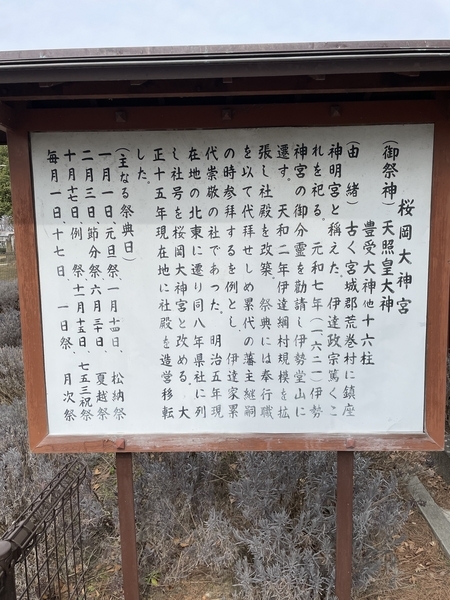 桜岡大神宮
(御祭神) 天照皇大神
豊受大神他十六柱
(由 緒) 古く宮城郡荒巻村に鎮座
神明宮と称えた。伊達政宗篤くこ
れを祀る。元和七年(一六二一)伊勢
神宮の御分霊を勧請し伊勢堂山に
遷す。天和二年伊達綱村規模を拡
張し社殿を改築。祭典には奉行職
を以て代拝せしめ累代の藩主継嗣
の時参拝するを例とし、伊達家累
代崇敬の社であった。明治五年現
在地の北東に遷り同八年県社に列
し社号を桜岡大神宮と改める。大
正十五年現在地に社殿を造営移転
した。
(主なる祭典日)
一月一日元旦祭、一月十四日、 松納祭
二月三日節分祭 六月三十日、 夏越祭
十月十七日例 祭 十一月十五日、七五三祝祭
毎月一日、十七日、 一日祭、 月次祭